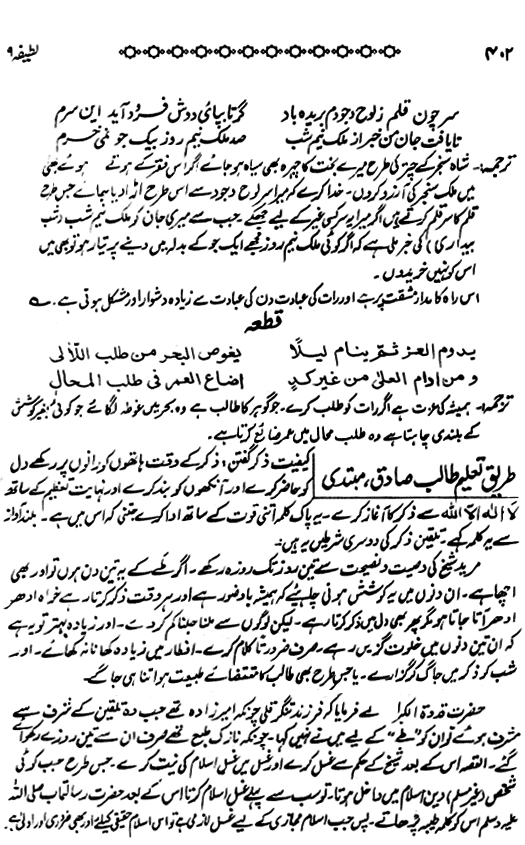 ۴۰۲ لطیفہ ۹
سر چون قلم ز لوح وجودم بریدہ باد گر تا بپائے دوش فرود آید این سرم
تا یافت جان من خبر از ملک نیم شب صد ملک نیم روز بیک جو نمی خرم
ترجمہ:- شاہ سنجر کے چتر کی طرح میرے بخت کا چہرہ بھی سیاہ ہو جائے اگر اس فقر کے ہوتے ہوئے بھی
میں ملک سنجر کی آرزو کروں۔ خدا کرے کہ میرا سر لوح وجود سے اس طرح اڑا دیا جائے جس طرح
قلم کا سر قلم کرتے ہیں اگر میرا یہ سر کسی غیر کے لیے جھکے۔ جب سے میری جان کو ملک نیم شب (شب
بیداری) کی خبر ملی ہے کہ اگر کوئی ملک نیم روز مجھے ایک جو کے بدلہ میں دینے پر تیار ہو تو بھی میں
اس کو نہیں خریدوں۔
اس راہ کا مدار مشقت پر ہے اور رات کی عبادت دن کی عبادت سے زیادہ دشوار اور مشکل ہوتی ہے۔
قطعہ
یدوم العز ثم ینام لیلًا یغوص البحر من طلب اللآلی
ومن ادام العلیٰ من غیر کدٍ اضاع العمر فی طلب المحال
ترجمہ:- ہمیشہ کی عزت ہے اگر رات کو طلب کرے۔ جو گوہر کا طالب ہے وہ بحر میں غوطہ لگائے جو کوئی بغیر کوشش
کے بلندی چاہتا ہے وہ طلب محال میں عمر ضائع کرتا ہے۔
طریق تعلیم طالب صادق، مبتدی کیفیت ذکر گفتن: ذکر کے وقت ہاتھوں کو زانوں پر رکھے دل
کو حاضر کرے اور آنکھوں کو بند کرے اور نہایت تعظیم کے ساتھ
لا الٰہ الا اللہ سے ذکر کا آغاز کرے۔ یہ پاک کلمہ اتنی قوت کے ساتھ ادا کرے جتنی کہ اس میں ہے۔ بلند آواز
سے یہ کلمہ کہے۔ تلقین ذکر کی دوسری شرطیں یہ ہیں:-
مرید شیخ کی وصیت و نصیحت سے تین روز تک روزہ رکھے۔ اگر طے کے یہ تین دن ہوں تو اور بھی
اچھا ہے۔ ان دنوں میں یہ کوشش ہونی چاہیئے کہ ہمیشہ باوضو رہے اور ہر وقت ذکر کرتا رہے خواہ ادھر
ادھر آتا جاتا ہو مگر پھر بھی دل میں ذکر کرتا رہے۔ لیکن لوگوں سے ملنا جلنا کم کر دے۔ اور زیادہ بہتر تو یہ ہے
کہ ان تین دنوں میں خلوت گزیں رہے۔ صرف ضرورتاً کلام کرے۔ افطار میں زیادہ کھانا نہ کھائے۔ اور
شب کو ذکر میں جاگ کر گزارے۔ یا جس طرح بھی طالب کا مقتضائے طبیعت ہو اتنا ہی جاگے۔
حضرت قدوۃ الکبرا نے فرمایا کہ فرزند تنگر قلی چونکہ امیر زادہ تھے جب وہ تلقین کے شرف سے
مشرف ہوئے تو ان کو "طے" کے لیے میں نے نہیں کہا۔ چونکہ نازک طبع تھے صرف ان سے تین روزے رکھوائے
گئے۔ القصہ اس کے بعد شیخ کے حکم سے غسل کرے اور غسل میں غسل اسلام کی نیت کرے۔ جس طرح جب کوئی
شخص (غیر مسلم) دین اسلام میں داخل ہوتا۔ تو سب سے پہلے غسل اسلام کرتا اس کے بعد حضرت رسالتمآب صلی اللہ
علیہ وسلم اس کو کلمہ طیبہ پڑھاتے۔ پس جب اسلام مجازی کے لیے غسل لازمی ہے تو اس اسلام حقیقی کیلئے اور بھی ضروری اور اولیٰ ہے۔